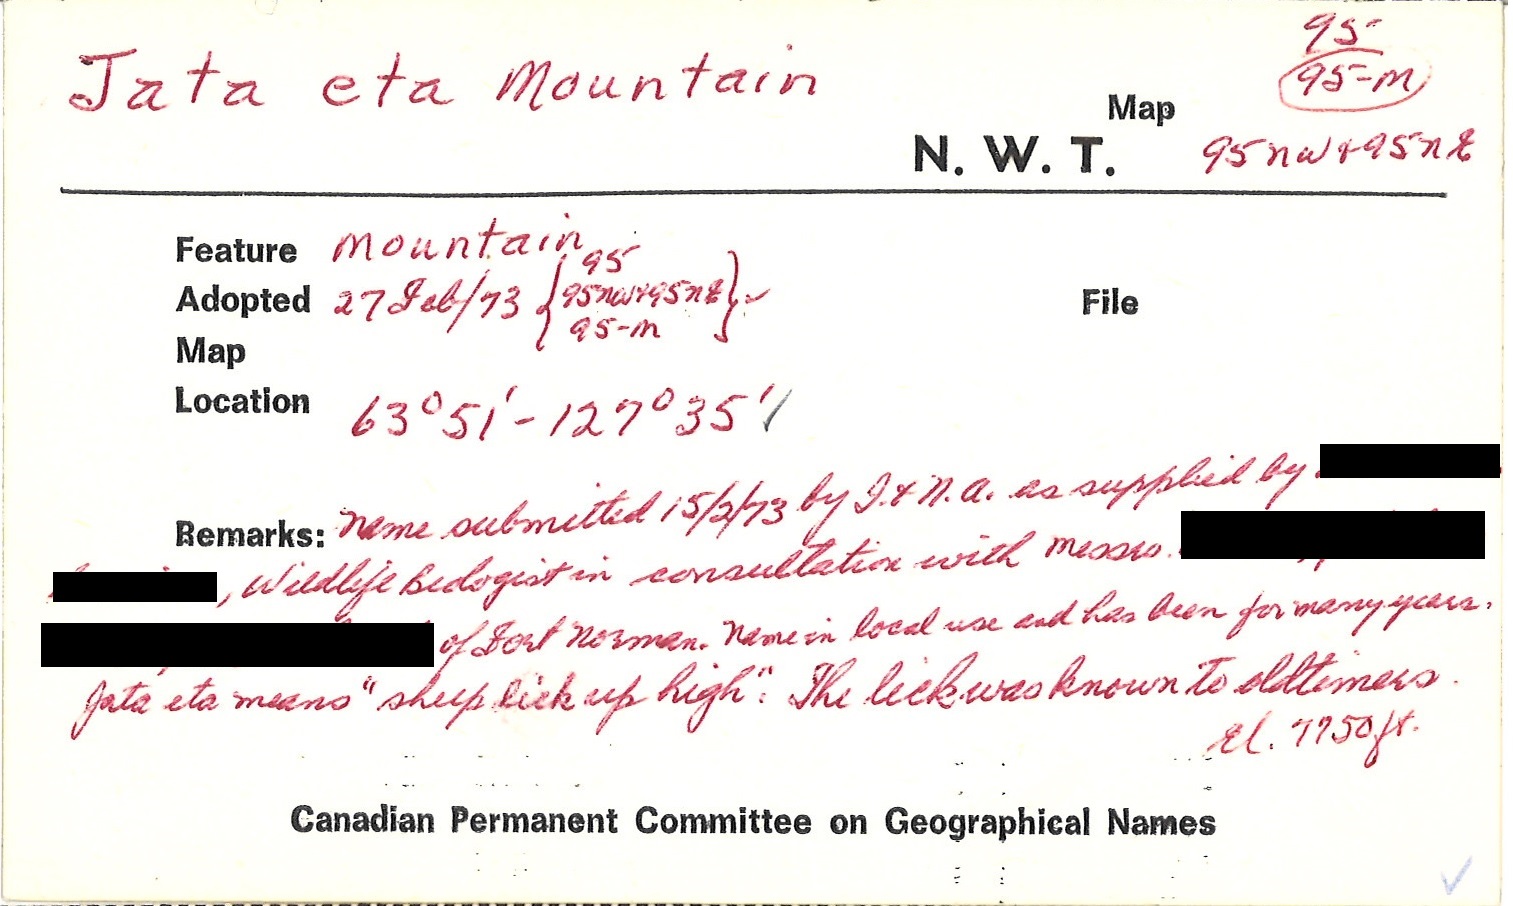 Jata eta Mountain
95
95-M
Map
N. W. T.
95 NW & 95 NE
Feature Mountain
Adopted 27 Feb/73 { 95 95NW & 95NE 95-M }
File
Map
Location 63°51' - 127°35'
Remarks: Name submitted 15/2/73 by I. & N.A. as supplied by
, Wildlife Biologist in consultation with Messrs.
of Fort Norman. Name in local use and has been for many years.
Jata eta means "sheep lick up high". The lick was known to oldtimers.
El. 7750 ft.
Canadian Permanent Committee on Geographical Names